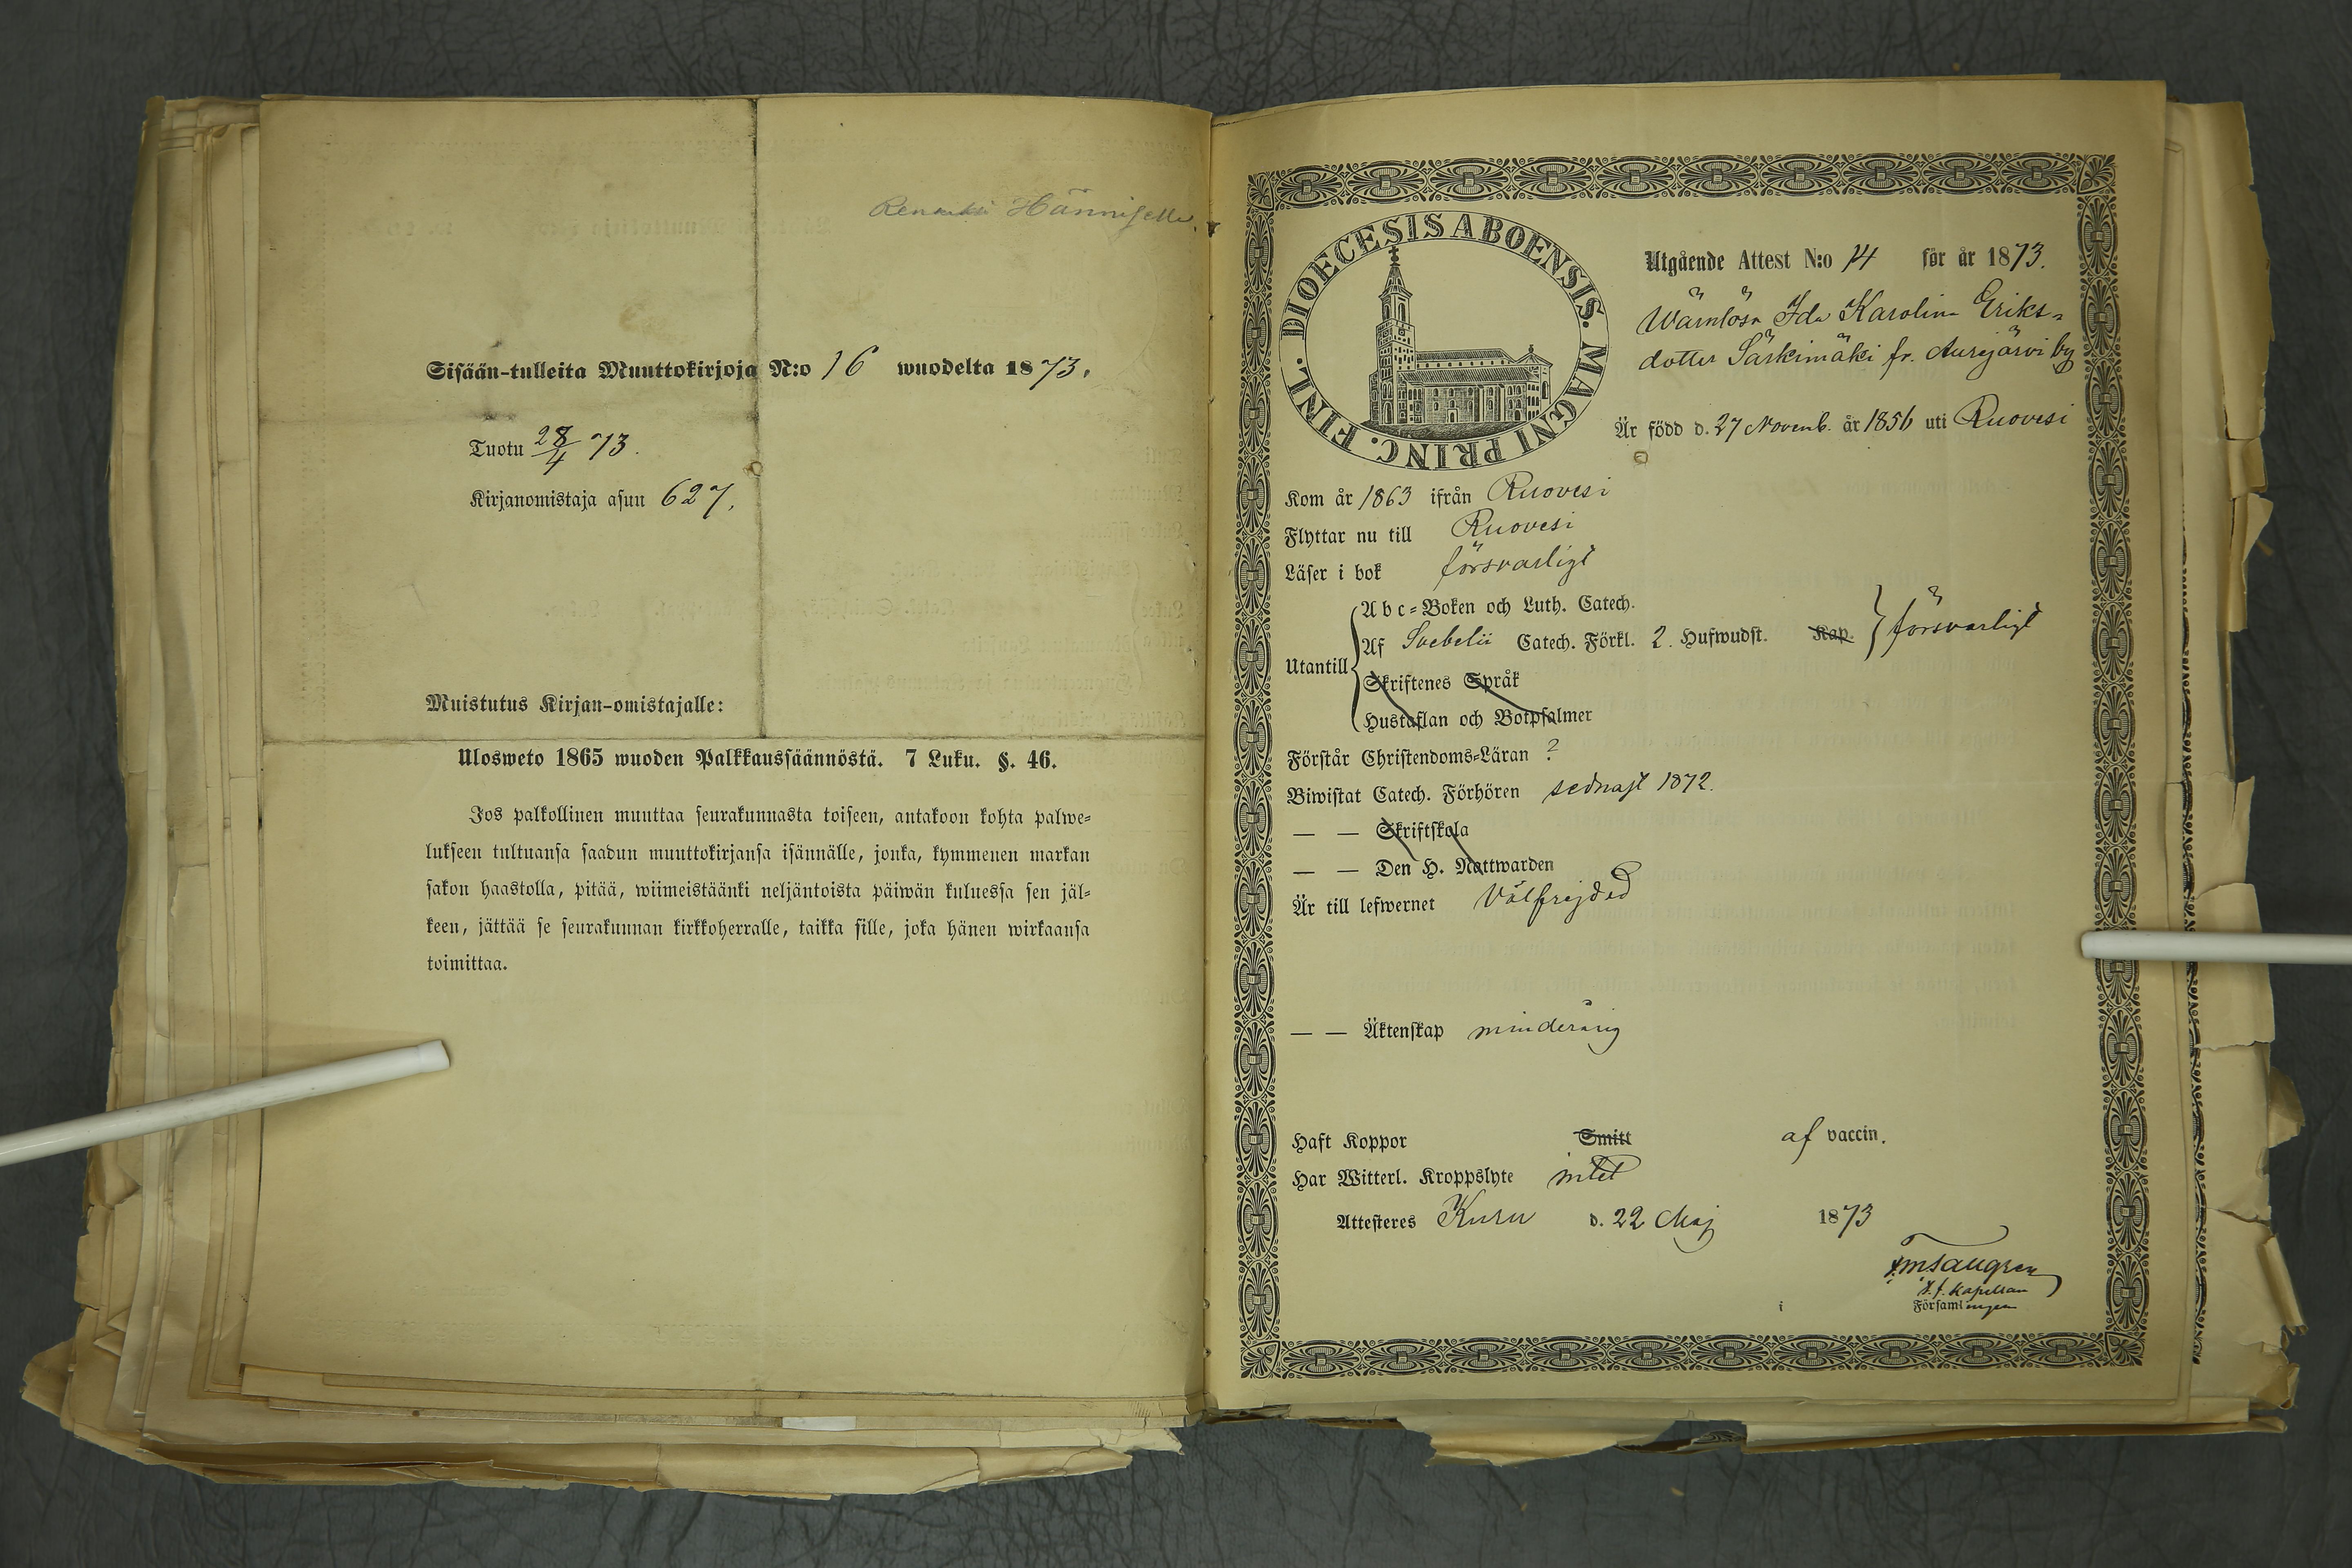 Hänniselle.
Sisään-tulleita Muuttokirjoja N:o 16 wuodelta 1873.
Tuotu 28/4 73.
Kirjanomistaja asuu 627.
Muistutus Kirjan-omistajalle:
Ulosweto 1865 wuoden Palkkaussäännöstä. 7 Luku. §. 46.
Jos palkollinen muuttaa seurakunnasta toiseen, antakoon kohta palwe-
lukseen tultuansa saadun muuttokirjansa isännälle, jonka, kymmenen markan
sakon haastolla, pitää, wiimeistäänki neljäntoista päiwän kuluessa sen jäl-
keen, jättää se seurakunnan kirkkoherralle, taikka sille, joka hänen wirkaansa
toimittaa.
DIOECESIS ABOENSIS. MAGNI PRINC. FINL.
Utgående Attest N:o 14 för år 1873.
Wärnlösa Ida Karolina Eriks-
dotter Särkimäki fr. Aurejärvi by
Är född d. 27 Novemb. år 1856 uti Ruovesi
Kom år 1863 ifrån Ruovesi
Flyttar nu till Ruovesi
Läser i bok försvarligt
Utantill
Abc-Boken och Luth. Catech.
Af Svebelii Catech. Förkl. 2. Hufwudst. Kap. försvarligt
Skriftenes Språk
Hustaflan och Botpsalmer
Förstår Christendoms-Läran ?
Biwistat Catech. Förhören sednast 1872.
— — Skriftskola
— — Den H. Nattwarden
Är till lefwernet Välfrejdad
— — Äktenskap minderårig
Haft Koppor Smitt af vaccin.
Har Witterl. Kroppslyte intet
Attesteres Kuru d. 22 Maj 1873
t. f. Kapellan
i Församlingen